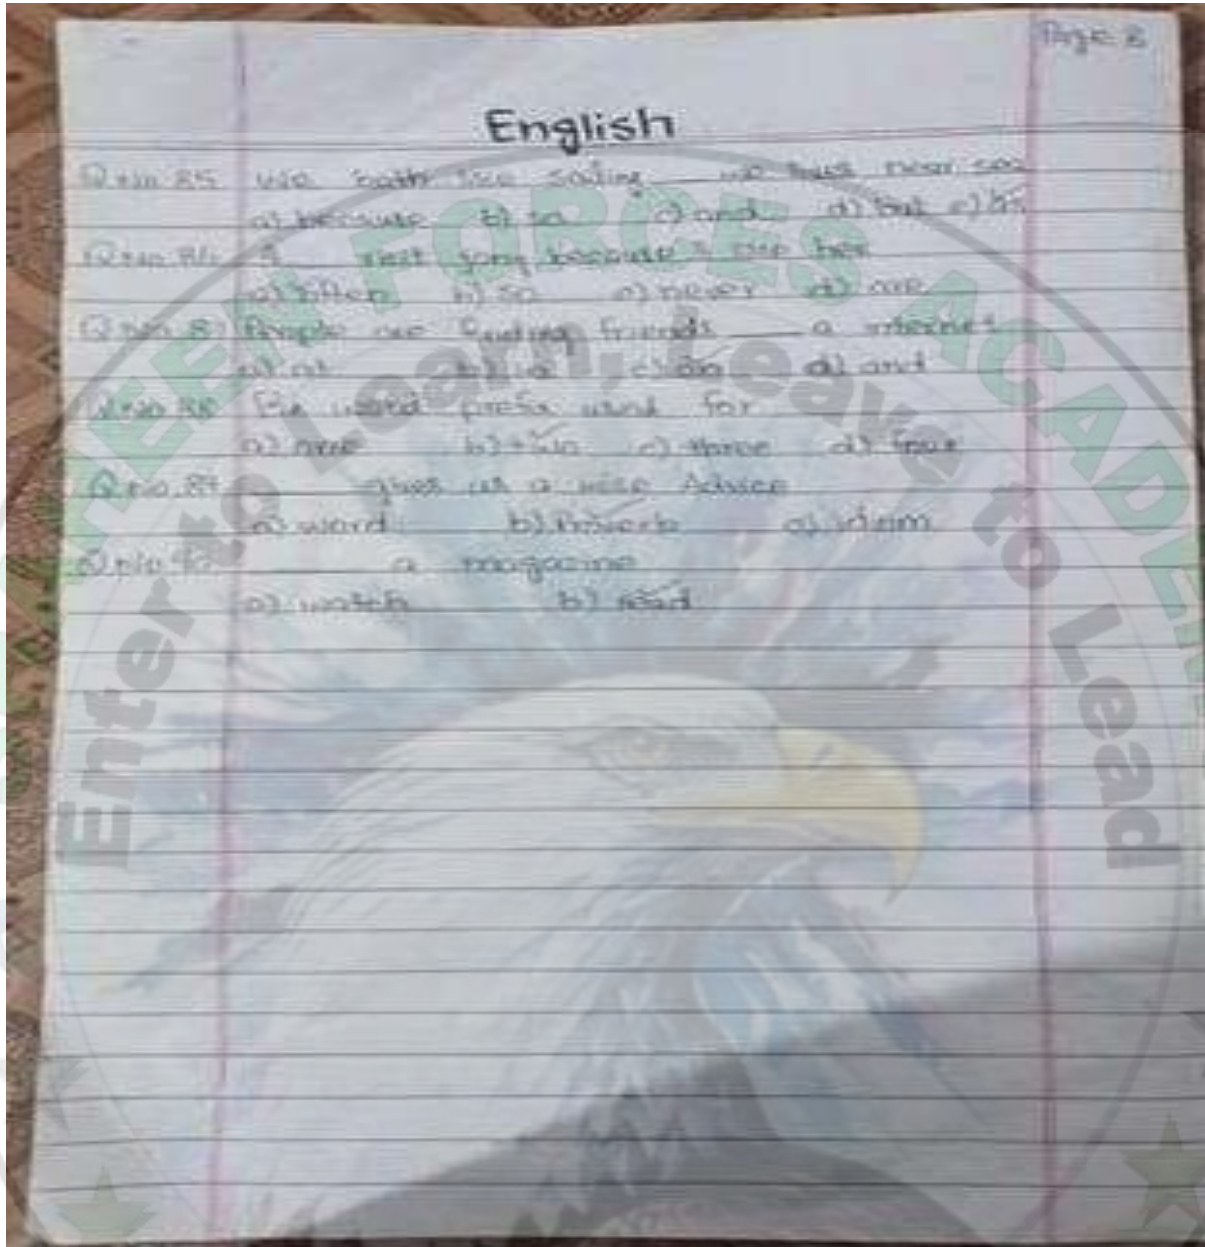 Page 8
English
Q.No.85 we both like sailing ___ we live near sea
a) because b) so c) and d) but
Q.No.86 I ___ visit because I her
a) often b) so c) never d) are
Q.No.87 People are finding friends ___ a internet
a) at c) on d) and
Q.No.88 word prefix used for ___
a) one c) three d) four
Q.No.89 ___ gives us a wise Advice
a) word b) Proverb c) idiom
Q.No.90 ___ a magazine
a) watch b) read
FORCES ACADE
Enter to Learn, Leave to Lead